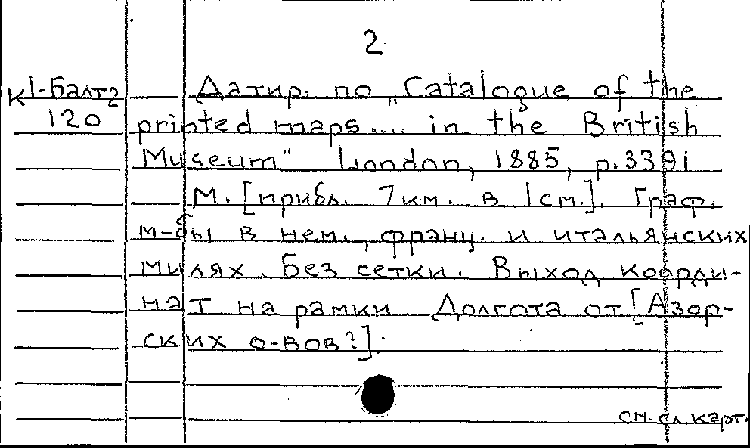 2
К1-Балт2 Датир. по „Catalogue of the
120 printed maps.... in the British
Museum" London, 1885, p.3391
М. [прибл. 7км. в 1см.]. Граф.
м-бы в нем., франц. и итальянских
милях. Без сетки. Выход коорди-
нат на рамки Долгота от [Азор-
ских о-вов?].
см. сл. карт.